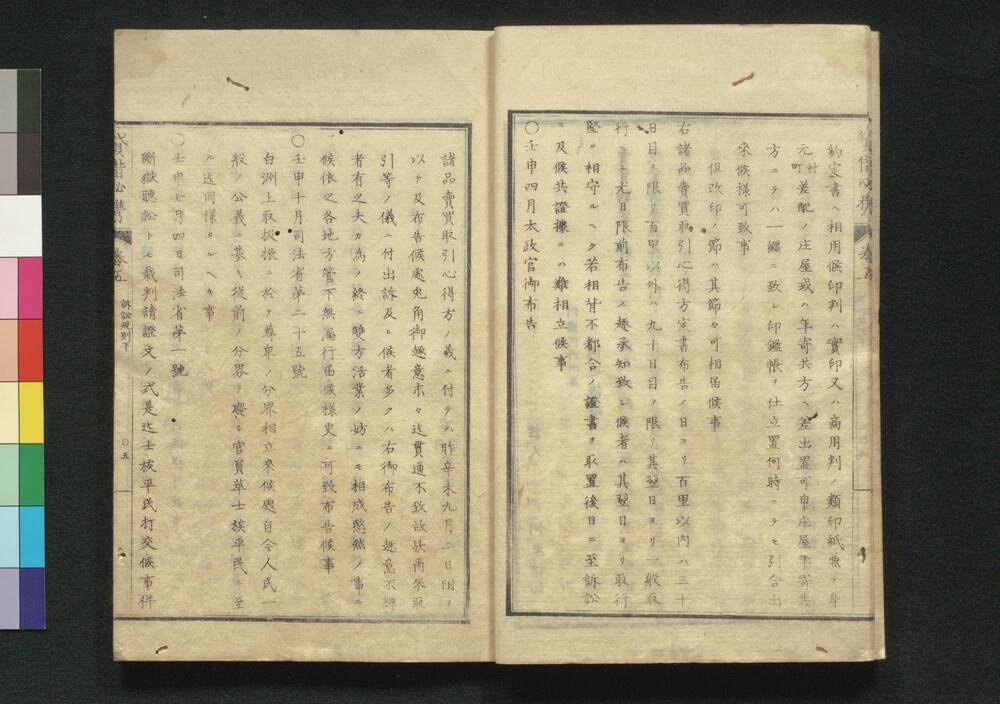 約定書ヘ相用候印判ハ實印又ハ商用判ノ類印紙兼テ身
元村町差配ノ庄屋或ハ年寄共方ヘ差出置可申庄屋年寄共
方ニテハ一纏ニ致シ印鑑帳ヲ仕立置何時ニテモ引合出
來候樣可致事
但改印ノ節ハ其節々可相届候事
右諸品賣買取引心得方定書布告ノ日ヨリ百里以内ハ三十
日目ヲ限リ百里以外ハ九十日目ヲ限リ其翌日ヨリ一般取
行ヒ尤日限前布告ノ趣承知致シ候者ハ其翌日ヨリ取行
堅ク相守ルヘク若相背不都合ノ證書ヲ取置後日ニ至訴訟
ニ及候共證據ニハ難相立候事
〇壬申四月太政官御布告
諸品賣買取引心得方ノ義ニ付テハ昨辛未九月二日附ヲ
以テ及布告候處兎角御趣意末々迄貫通不致故歟爾來取
引等ノ儀ニ付出訴及ヒ候者多クハ右御布告ノ趣意不辨
者有之夫カ為ノ終ニ雙方活業ノ妨ニモ相成愍然ノ事ニ
候依之各地方管下無漏行届候樣更ニ可致布告候事
〇壬申十月司法省第二十五號
白洲上取扱振ニ於テ尊卑ノ分界相立來候處自今人民一
般ノ公義ニ基キ從前ノ分界ヲ廢シ官員華士族平民ニ至
ル迄同樣タルヘキ事
〇壬申七月四日司法省第一號
斷獄聽訟トモ裁判請證文ノ式是迄士族平民打交候事件
貸借必携 卷五 訴訟規則下 〇五